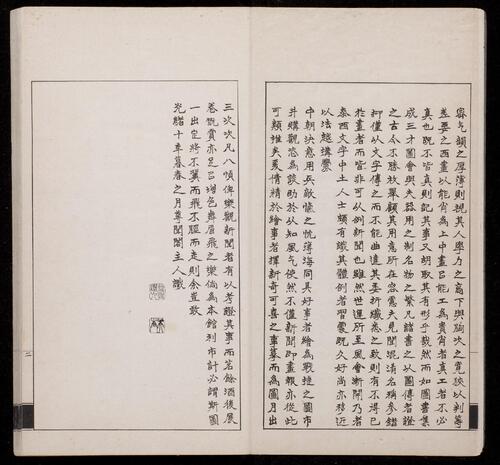 容气韻之厚薄則視其人學力之高下與胸次之寬狹以判等
差要之西畫以能肖為上中畫㠯能工為貴肖者真工者不必
真也既不皆真則記其事又胡取其有形乎哉然而如圖書集
成三才圖會與夫器用之制名物之繁凡諸書之以圖傳者證
之古今不勝枚舉顧其用意所在容慮夫見聞混淆名稱參錯
抑僅以文字傳之而不能曲達其委折纖悉之致則有不得已
於畫者而皆非可以例新聞也雖然世運所至風會漸開乃者
泰西文字中土人士頗有識其體例者習處既久好尚亦移近
以法越搆釁
中朝決意用兵敵愾之忱薄海同具好事者繪為戰捷之圖市
井購觀恣為談助於以知風气使然不僅新聞即畫報亦從此
可類推矣爰倩精於繪事者擇新奇可喜之事摹而為圖月出
三次次凡八幀俾樂觀新聞者有以考證其事而茗餘酒後展
卷翫賞亦足㠯增色舞眉飛之樂倘為本館利市計必謂斯圖
一出定將不翼而飛不脛而走則余豈敢
光緒十年暮春之月尊聞閣主人識